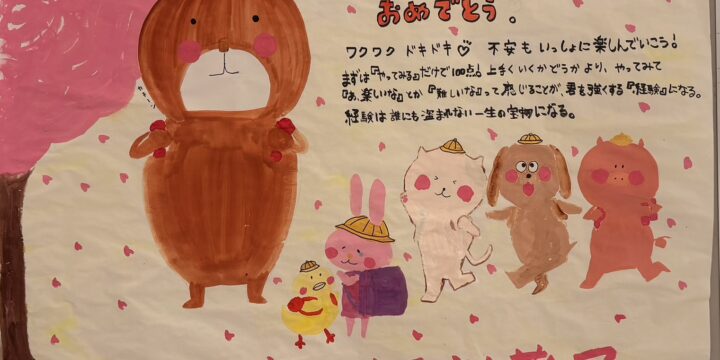 おめでとう。
ワクワク ドキドキ♡ 不安もいっしょに楽しんでいこう!
まずは『やってみる』だけで100点! 上手くいくかどうかより、やってみて
『あ、楽しいな』とか『難しいな』って感じることが、君を強くする『経験』になる。
経験は誰にも盗まれない一生の宝物になる。